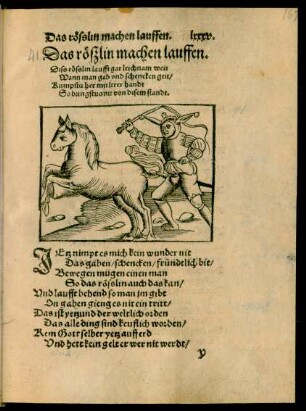 Das rösslin machen lauffen. lxxxv.
Das rößlin machen lauffen.
Diss rösslin laufft gar leichnam weit
Wann man gab vnd schencken geit/
Kumpstu her mit lerer handt
So dem von disem standt.
JEtz nimpt es mich kein wunder nit
Das gaben/schencken/früntlich bit/
Bewegen mügen einen man
So das rösslin auch das kan/
Vnd laufft behend so man im gibt
On gaben gieng es nit ein tritt/
Das ist yetzund der weltlich orden
Das alle ding sind keufflich worden/
Kein Gott selber yetz auff erd
Vnd hett kein gelt er wer nit werdt/
v